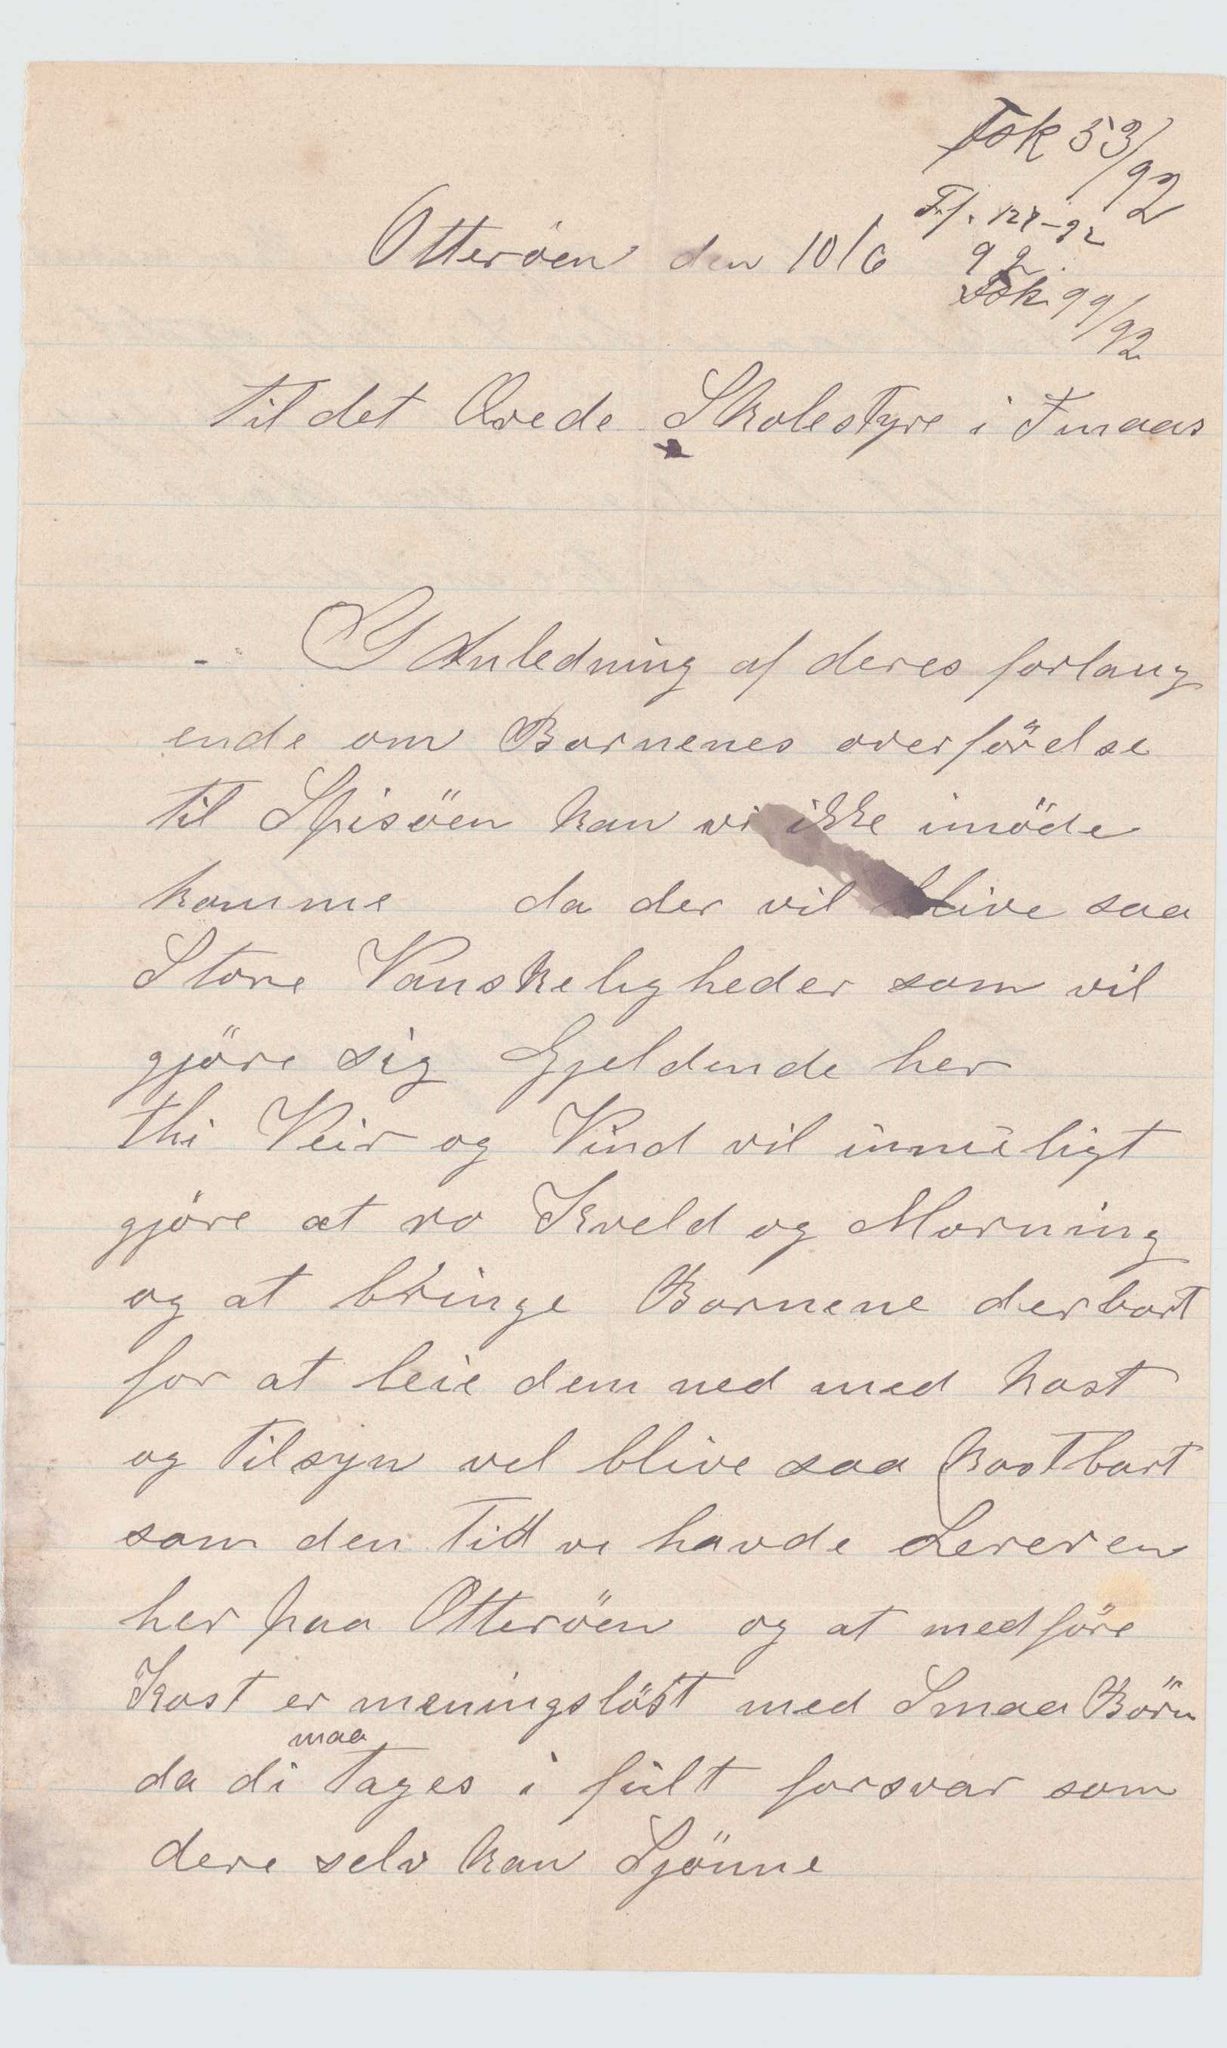 Fsk 53/92
Fj. 128-92
Otterøen den 10/6 92.
Fsk 99/92
til det Ærede Skolestyre i Finaas
I Anledning af deres forlang
ende om Barnenes overførdelse
til Spisöen kan vi ikke imöde
komme da der vil blive saa
Store Vanskeligheder som vil
gjöre sig Gjeldende her
thi Veir og Vind vil umuligt
gjöre at ro Kveld og Morning
og at bringe Barnene derbort
for at leie dem ned med kost
og tilsyn vel blive saa kostbart
som den Tid vi havde Lereren
her paa Otteröen og at medföre
Kost er meningslöst med Smaa Börn
da di maa tages i fült forsvar som
dere selv kan Sjönne